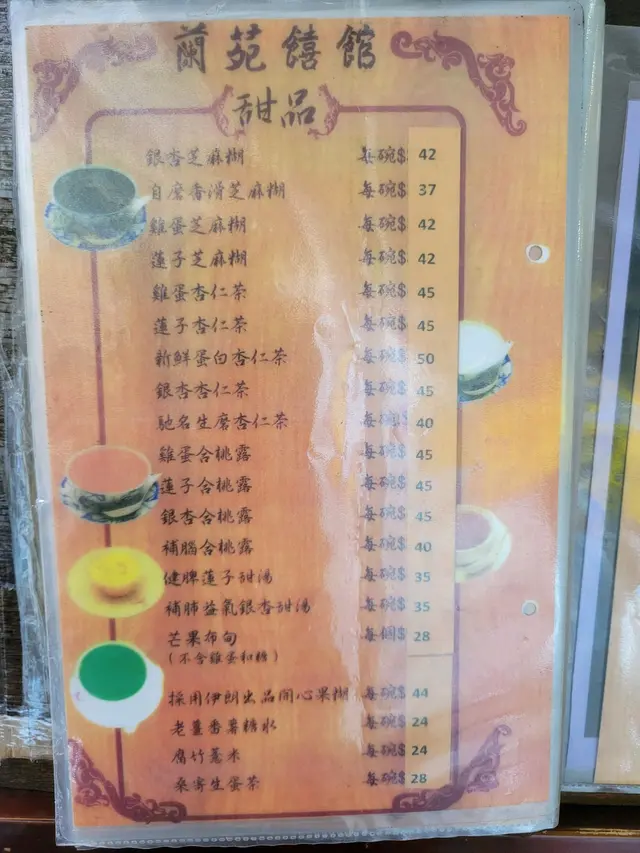 蘭苑饎館
甜品
銀杏芝麻糊 每碗$ 42
自磨香滑芝麻糊 每碗$ 37
雞蛋芝麻糊 每碗$ 42
蓮子芝麻糊 每碗$ 42
雞蛋杏仁茶 每碗$ 45
蓮子杏仁茶 每碗$ 45
新鮮蛋白杏仁茶 每碗$ 50
銀杏杏仁茶 每碗$ 45
馳名生磨杏仁茶 每碗$ 40
雞蛋合桃露 每碗$ 45
蓮子合桃露 每碗$ 45
銀杏合桃露 每碗$ 45
補腦合桃露 每碗$ 40
健脾蓮子甜湯 每碗$ 35
補肺益氣銀杏甜湯 每碗$ 35
芒果布甸 每個$ 28
(不含雞蛋和糖)
採用伊朗出品開心果糊 每碗$ 44
老薑番薯糖水 每碗$ 24
腐竹薏米 每碗$ 24
桑寄生蛋茶 每碗$ 28